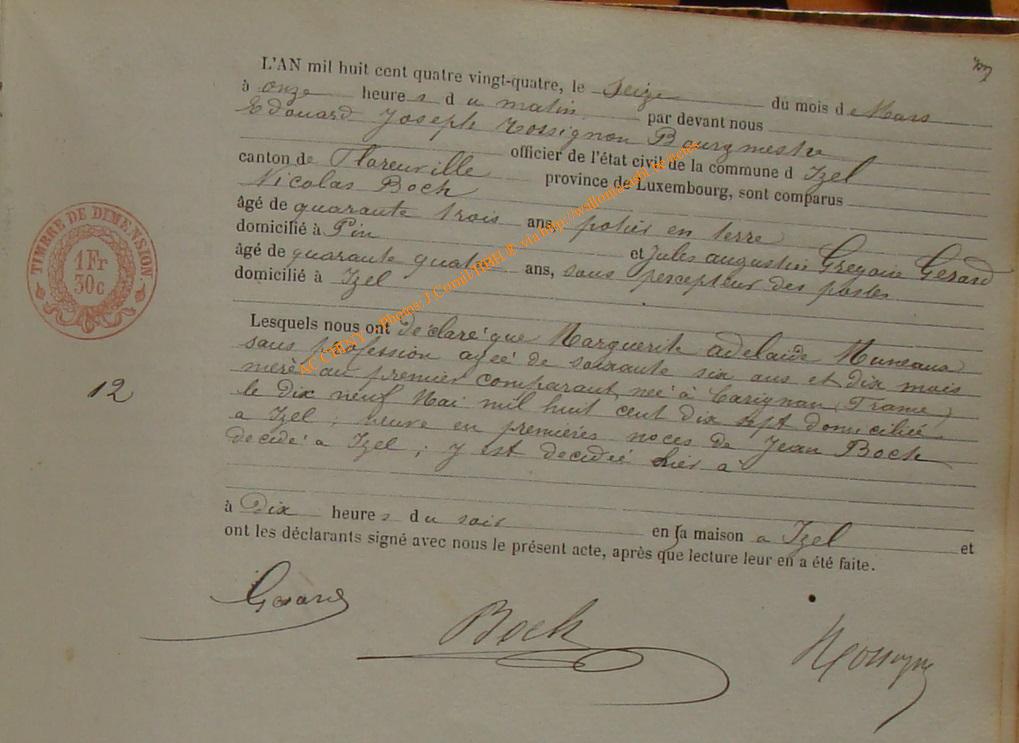 L'AN mil huit cent quatre vingt-quatre, le Seize du mois de Mars
à onze heures du matin par devant nous
Edouard Joseph Rossignon Bourgmestre
officier de l'état civil de la commune d Izel
canton de Florenville province de Luxembourg, sont comparus
Nicolas Bock
âgé de quarante trois ans, potier en terre
domicilié à Pin et Jules augustin Gregoire Gerard
âgé de quarante quatre ans, sous percepteur des postes
domicilié à Izel
Lesquels nous ont déclaré que Marguerite adelaïde
sans profession agée de soixante six ans et dix mois
mère au premier comparant, née à Carignan (France)
le dix neuf Mai mil huit cent dix sept domiciliée
a Izel; veuve en premières noces de Jean Bock
décidé a Izel; y est décidée hier a
à Dix heures du soir en sa maison a Izel et
ont les déclarants signé avec nous le présent acte, après que lecture leur en a été faite.
Gerard
Bock
TIMBRE DE DIMENSION
1 Fr
30 c
12